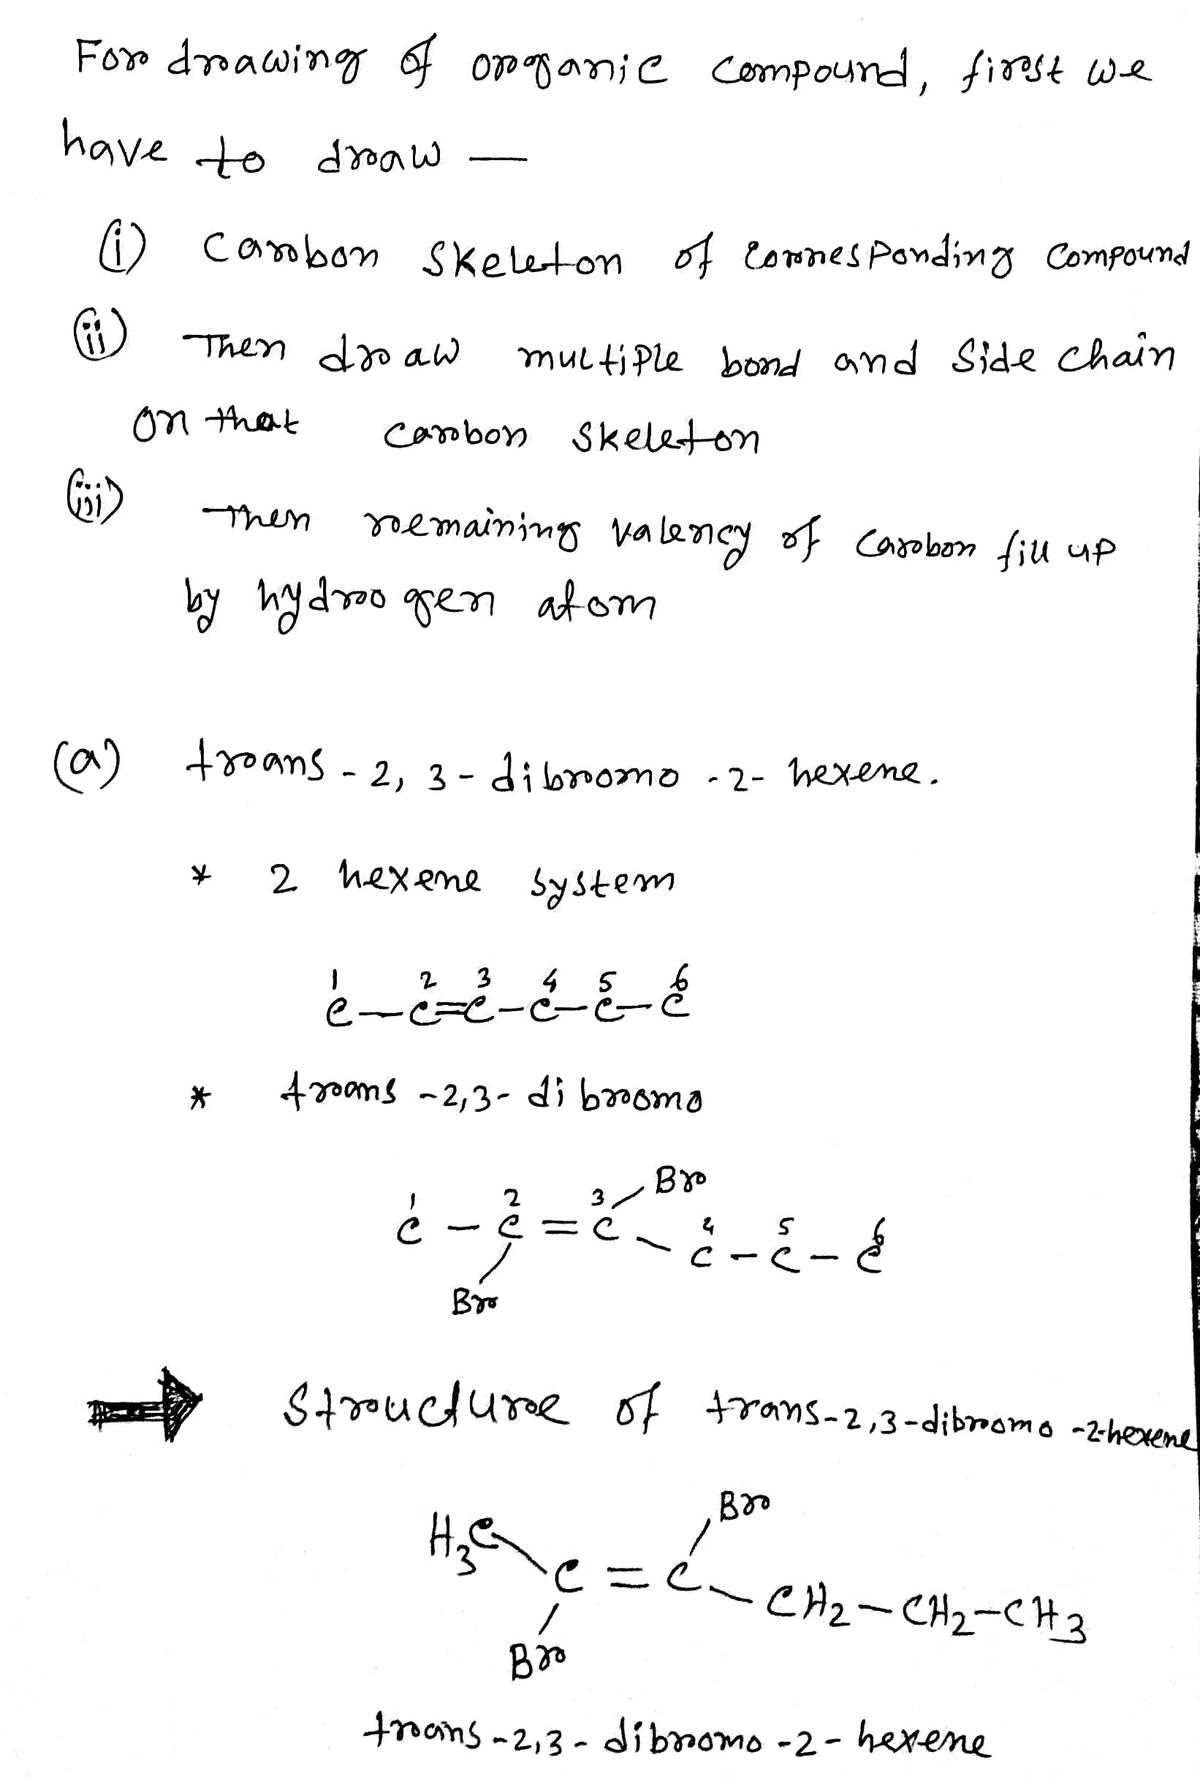 For drawing of organic compound, first we
have to draw —
(i) Carbon skeleton of corresponding compound
(ii) Then draw multiple bond and side chain
on that carbon skeleton
(iii) Then remaining valency of carbon fill up
by hydrogen atom
(a) trans - 2, 3 - dibromo - 2 - hexene.
* 2 hexene system
1 2 3 4 5 6
C—C=C—C—C—C
* trans - 2,3 - dibromo
Br
1 2 3 4 5 6
C - C = C - C - C - C
Br
Structure of trans-2,3-dibromo-2-hexene
Br
H3C C = C CH2—CH2—CH3
Br
trans - 2,3 - dibromo - 2 - hexene